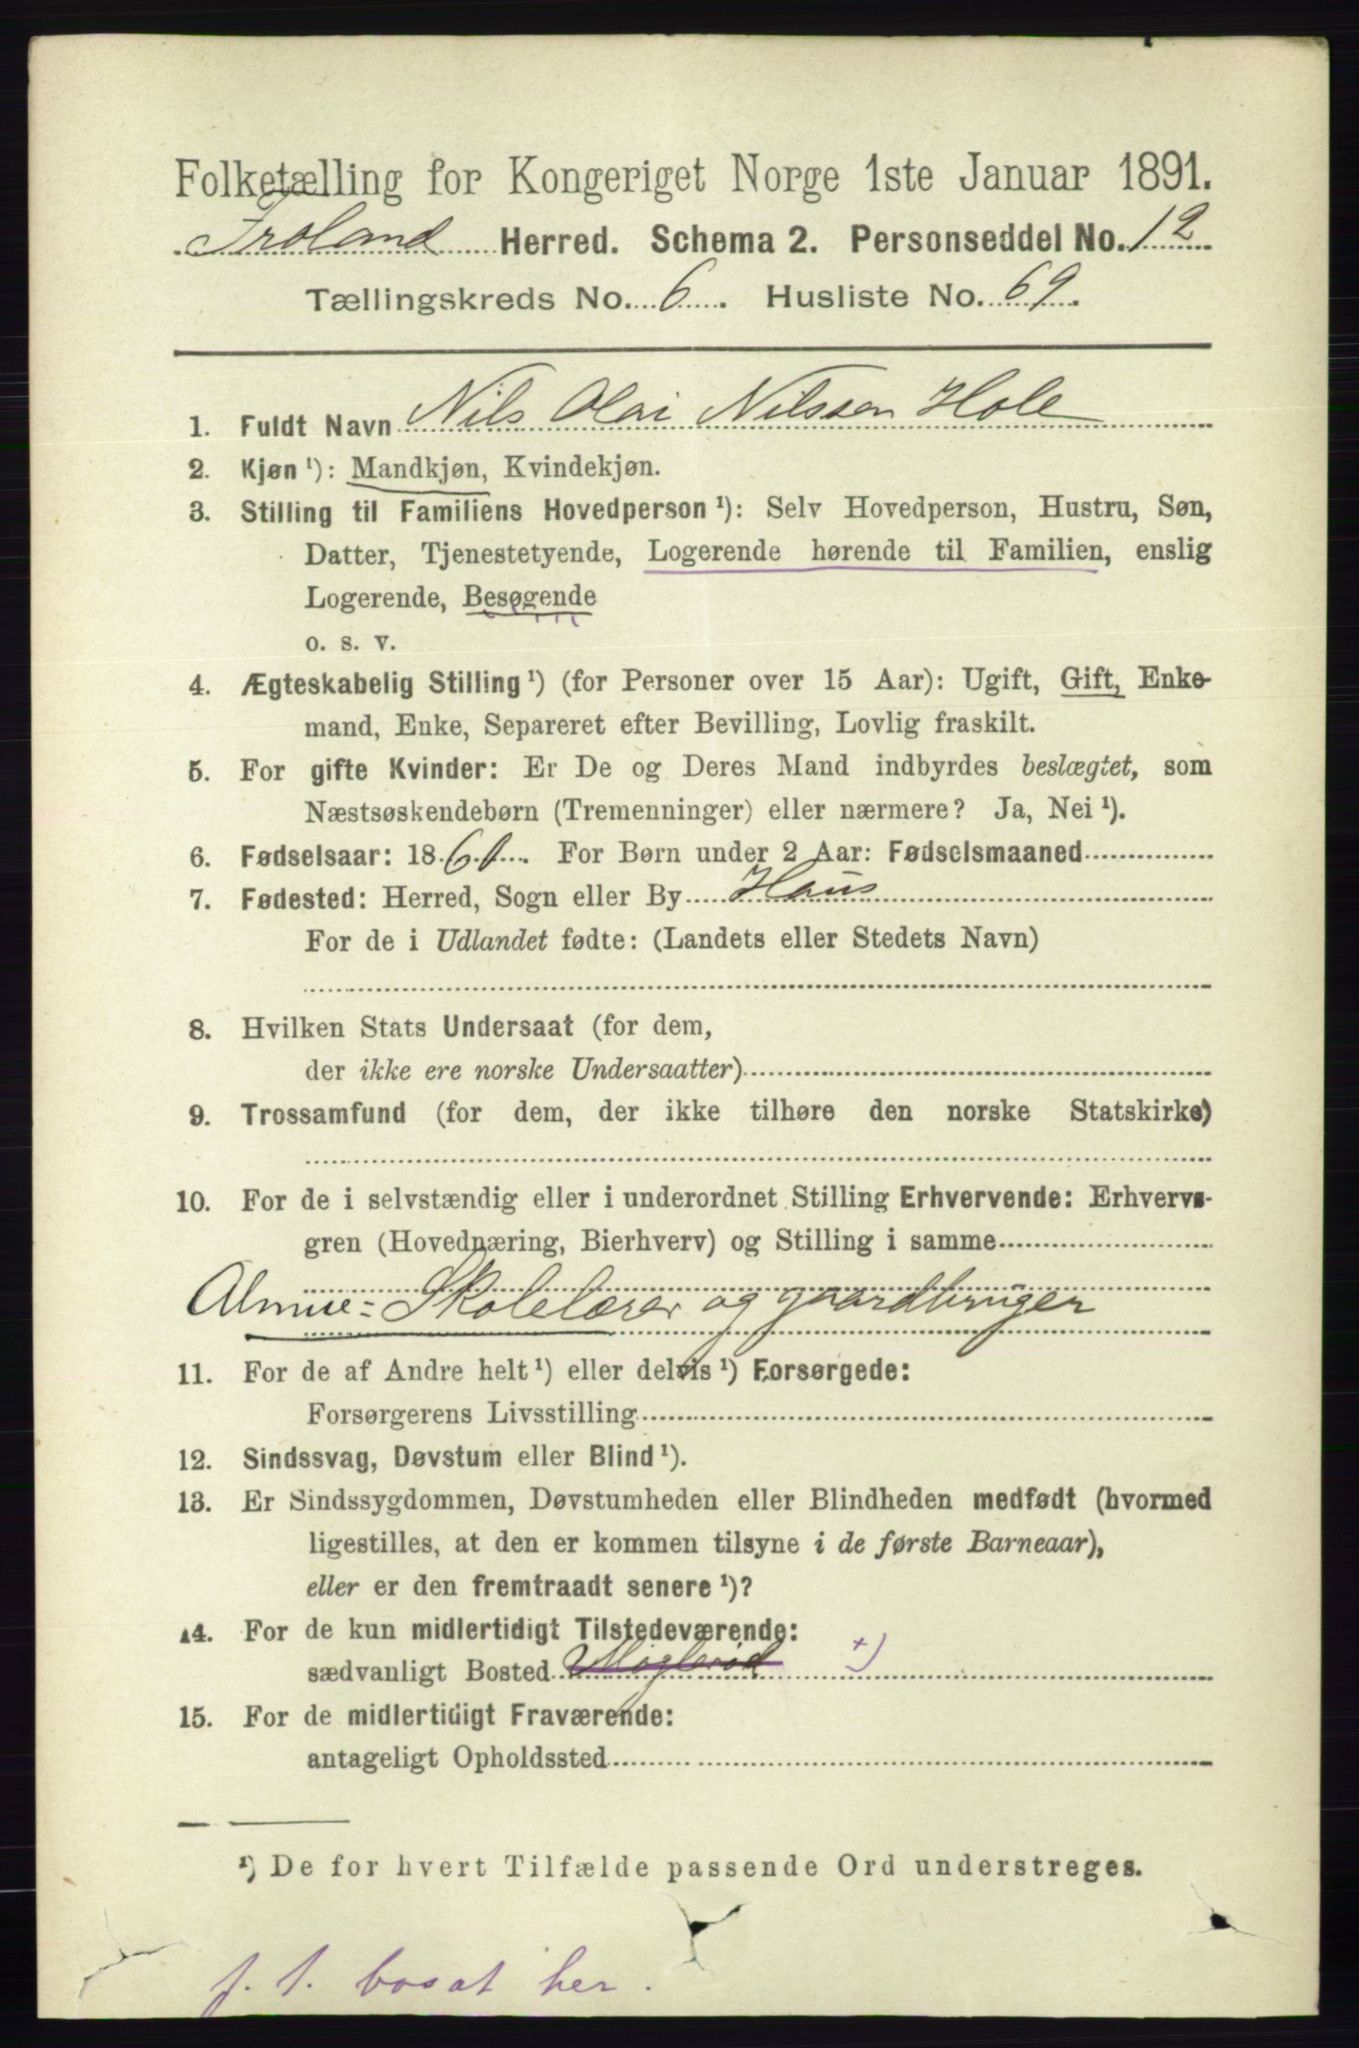 Folketælling for Kongeriget Norge 1ste Januar 1891.
Froland Herred. Schema 2. Personseddel No. 12
Tællingskreds No. 6. Husliste No. 69.
1. Fuldt Navn Nils Olai Nilssen Hole
2. Kjøn ¹): Mandkjøn, Kvindekjøn.
3. Stilling til Familiens Hovedperson ¹): Selv Hovedperson, Hustru, Søn,
Datter, Tjenestetyende, Logerende hørende til Familien, enslig
Logerende, Besøgende
o. s. v.
4. Ægteskabelig Stilling ¹) (for Personer over 15 Aar): Ugift, Gift, Enke-
mand, Enke, Separeret efter Bevilling, Lovlig fraskilt.
5. For gifte Kvinder: Er De og Deres Mand indbyrdes beslægtet, som
Næstsøskendebørn (Tremenninger) eller nærmere? Ja, Nei ¹).
6. Fødselsaar: 1861. For Børn under 2 Aar: Fødselsmaaned
7. Fødested: Herred, Sogn eller By Haus
For de i Udlandet fødte: (Landets eller Stedets Navn)
8. Hvilken Stats Undersaat (for dem,
der ikke ere norske Undersaatter)
9. Trossamfund (for dem, der ikke tilhøre den norske Statskirke)
10. For de i selvstændig eller i underordnet Stilling Erhvervende: Erhvervs-
gren (Hovednæring, Bierhverv) og Stilling i samme
Almue=Skolelærer og gaardbruger
11. For de af Andre helt ¹) eller delvis ¹) Forsørgede:
Forsørgerens Livsstilling
12. Sindssvag, Døvstum eller Blind ¹).
13. Er Sindssygdommen, Døvstumheden eller Blindheden medfødt (hvormed
ligestilles, at den er kommen tilsyne i de første Barneaar),
eller er den fremtraadt senere ¹)?
14. For de kun midlertidigt Tilstedeværende:
sædvanligt Bosted +)
15. For de midlertidigt Fraværende:
antageligt Opholdssted
¹) De for hvert Tilfælde passende Ord understreges.
f. t. bosat her.